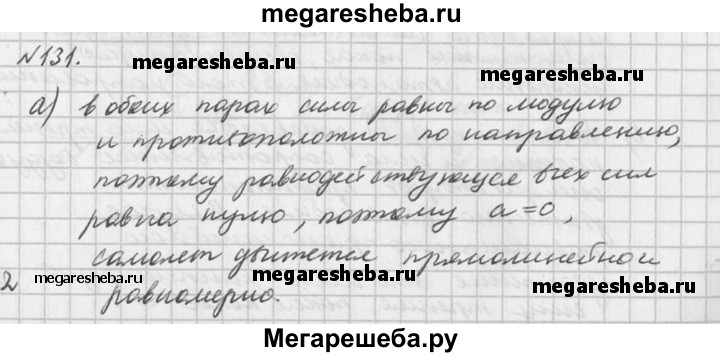 megaresheba.ru
№131.
megaresheba.ru
megaresheba.ru
а) в обеих парах силы равны по модулю
и противоположны по направлению,
поэтому равнодействующая всех сил
равна нулю, поэтому a=0,
самолет движется прямолинейно и
megaresheba.ru
megaresheba.ru
megaresheba.ru
2
равномерно.
Мегарешеба.ру